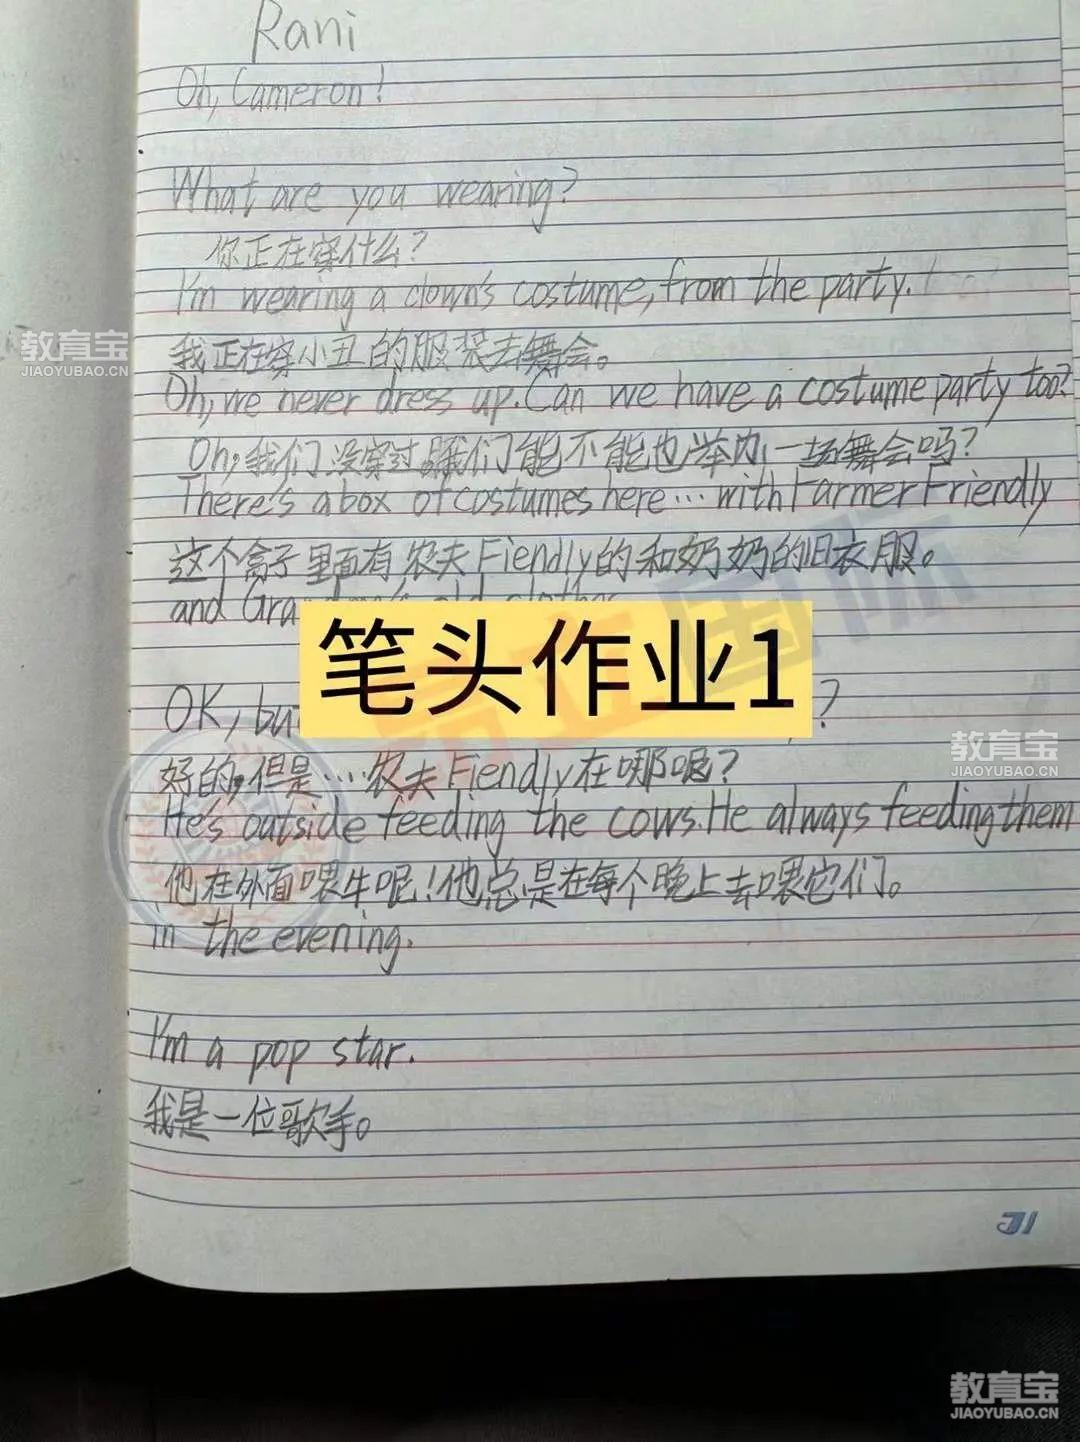 Rani
Oh, Cameron!
What are you wearing?
你正在穿什么?
I'm wearing a clown's costume, from the party.
我正在穿小丑的服装去舞会。
Oh, we never dress up. Can we have a costume party too?
Oh,我们没穿过,我们能不能也举办一场舞会吗?
There's a box of costumes here... with Farmer Friendly
这个盒子里面有农夫Fiendly的和奶奶的旧衣服。
and old
笔头作业1
OK,
?
好的,但是…农夫Fiendly在哪呢?
He's outside feeding the cows. He always feeding them
他在外面喂牛呢!他总是在每个晚上去喂它们。
in the evening.
I'm a pop star.
我是一位歌手。
教育宝
JIAOYUBAO.CN
教育宝
JIAOYUBAO.CN
教育宝
JIAOYUBAO.CN